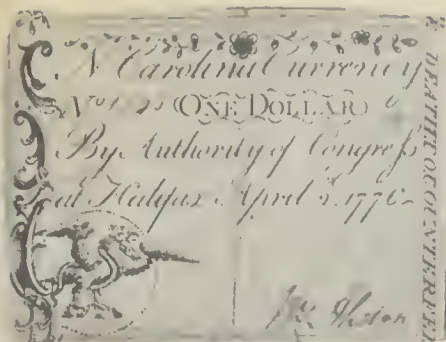 N Carolina Currency
No (ONE DOLLAR)
By Authority of Congress
at Halifax April 2. 1776
DEATH TO COUNTERFEI